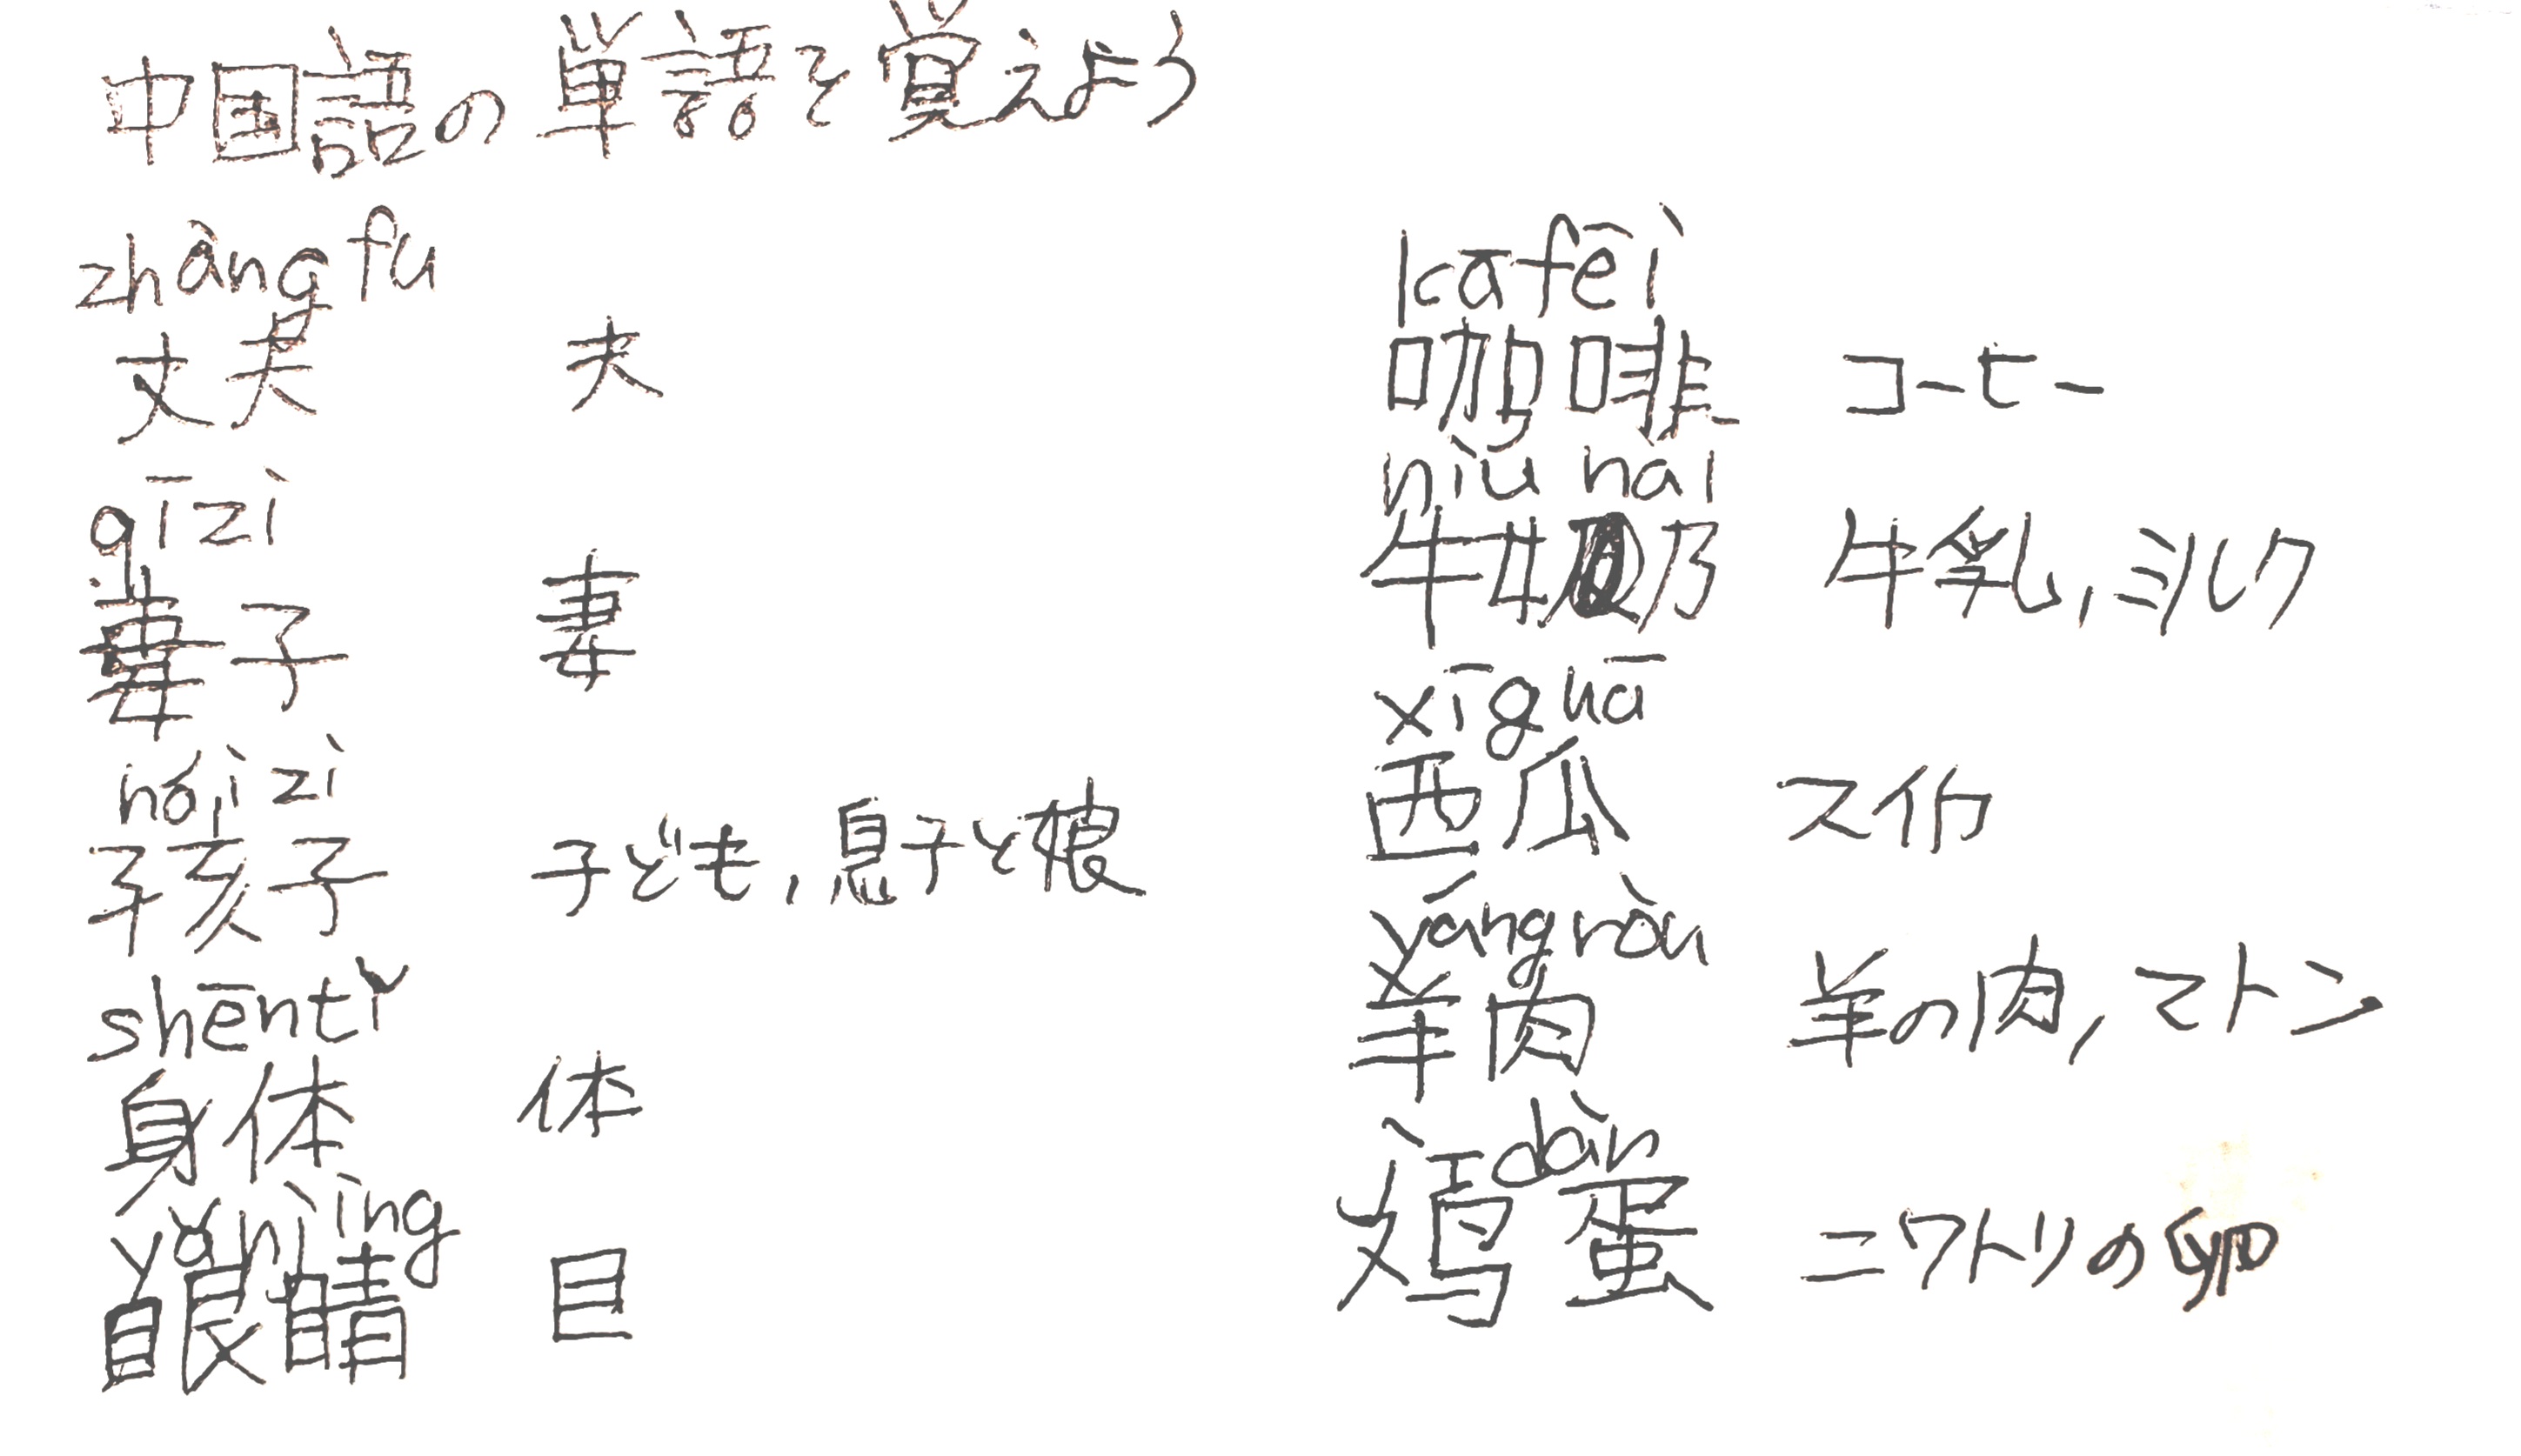 中国語の単語を覚えよう
zhàngfu
丈夫 夫
qīzi
妻子 妻
háizi
孩子 子ども,息子と娘
shēntǐ
身体 体
yǎnjing
眼睛 目
kāfēi
咖啡 コーヒー
niúnǎi
牛奶 牛乳,ミルク
xīguā
西瓜 スイカ
yángròu
羊肉 羊の肉,マトン
dàn
鸡蛋 ニワトリの卵